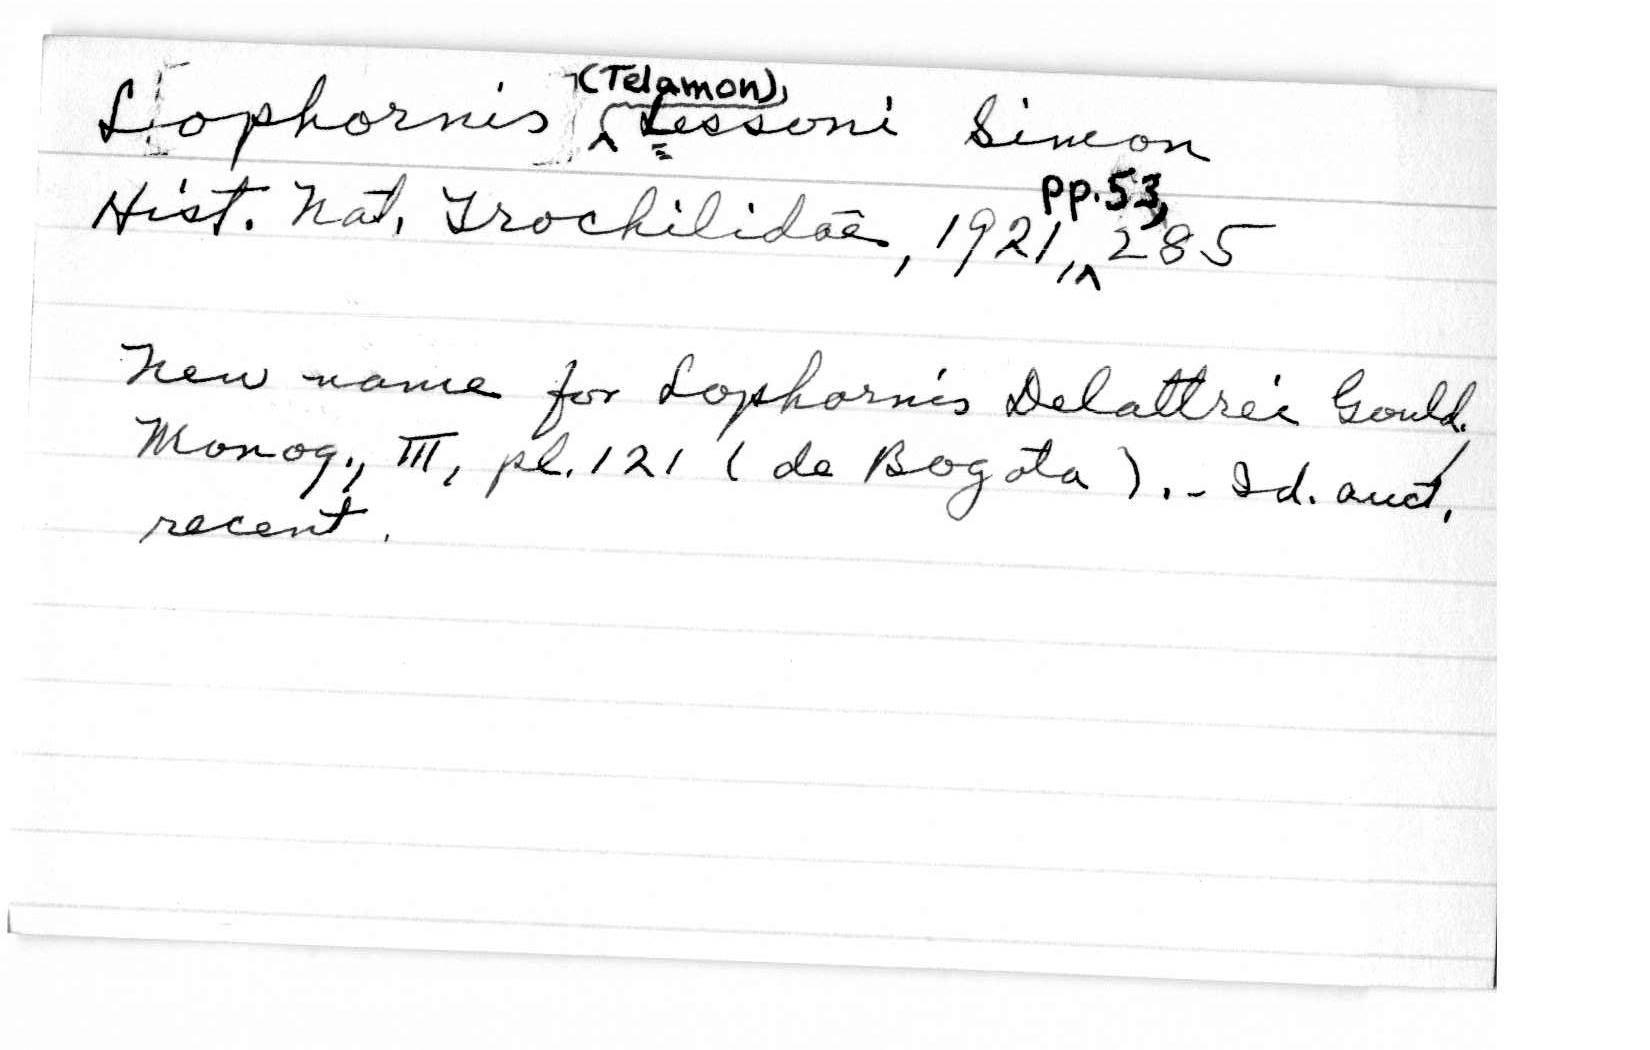 Lophornis (Telamon) Lessoni Simon
Hist. Nat. Trochilidae, 1921, pp. 53, 285
New name for Lophornis Delattrei Gould.
Monog., III, pl. 121 (de Bogota). - Id. auct.
recent.